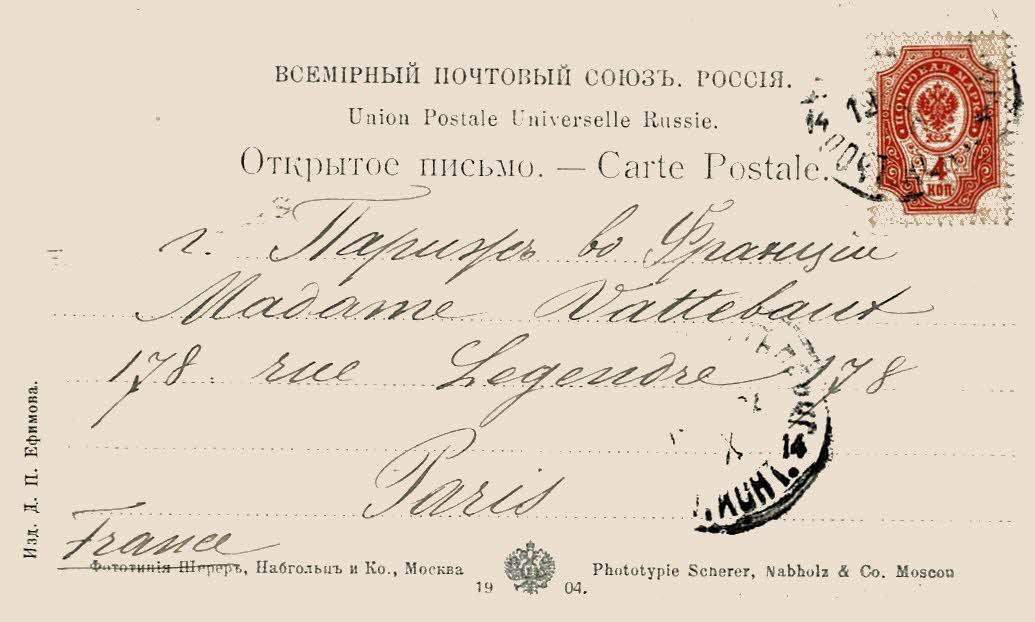 ВСЕМІРНЫЙ ПОЧТОВЫЙ СОЮЗЪ. РОССІЯ.
Union Postale Universelle Russie.
Открытое письмо. — Carte Postale.
ПОЧТОВАЯ МАРКА
4
КОП
14
г. Парижъ во Франціи
Madame Vattebaut
178 rue Legendre 178
Paris
France
14
Изд. Д. П. Ефимова.
Фототипія Шереръ, Набгольцъ и Ко., Москва
1904.
Phototypie Scherer, Nabholz & Co. Moscou